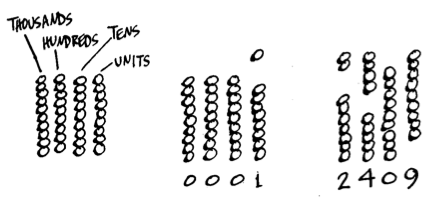 THOUSANDS
HUNDREDS
TENS
UNITS
0 0 0 1
2 4 0 9